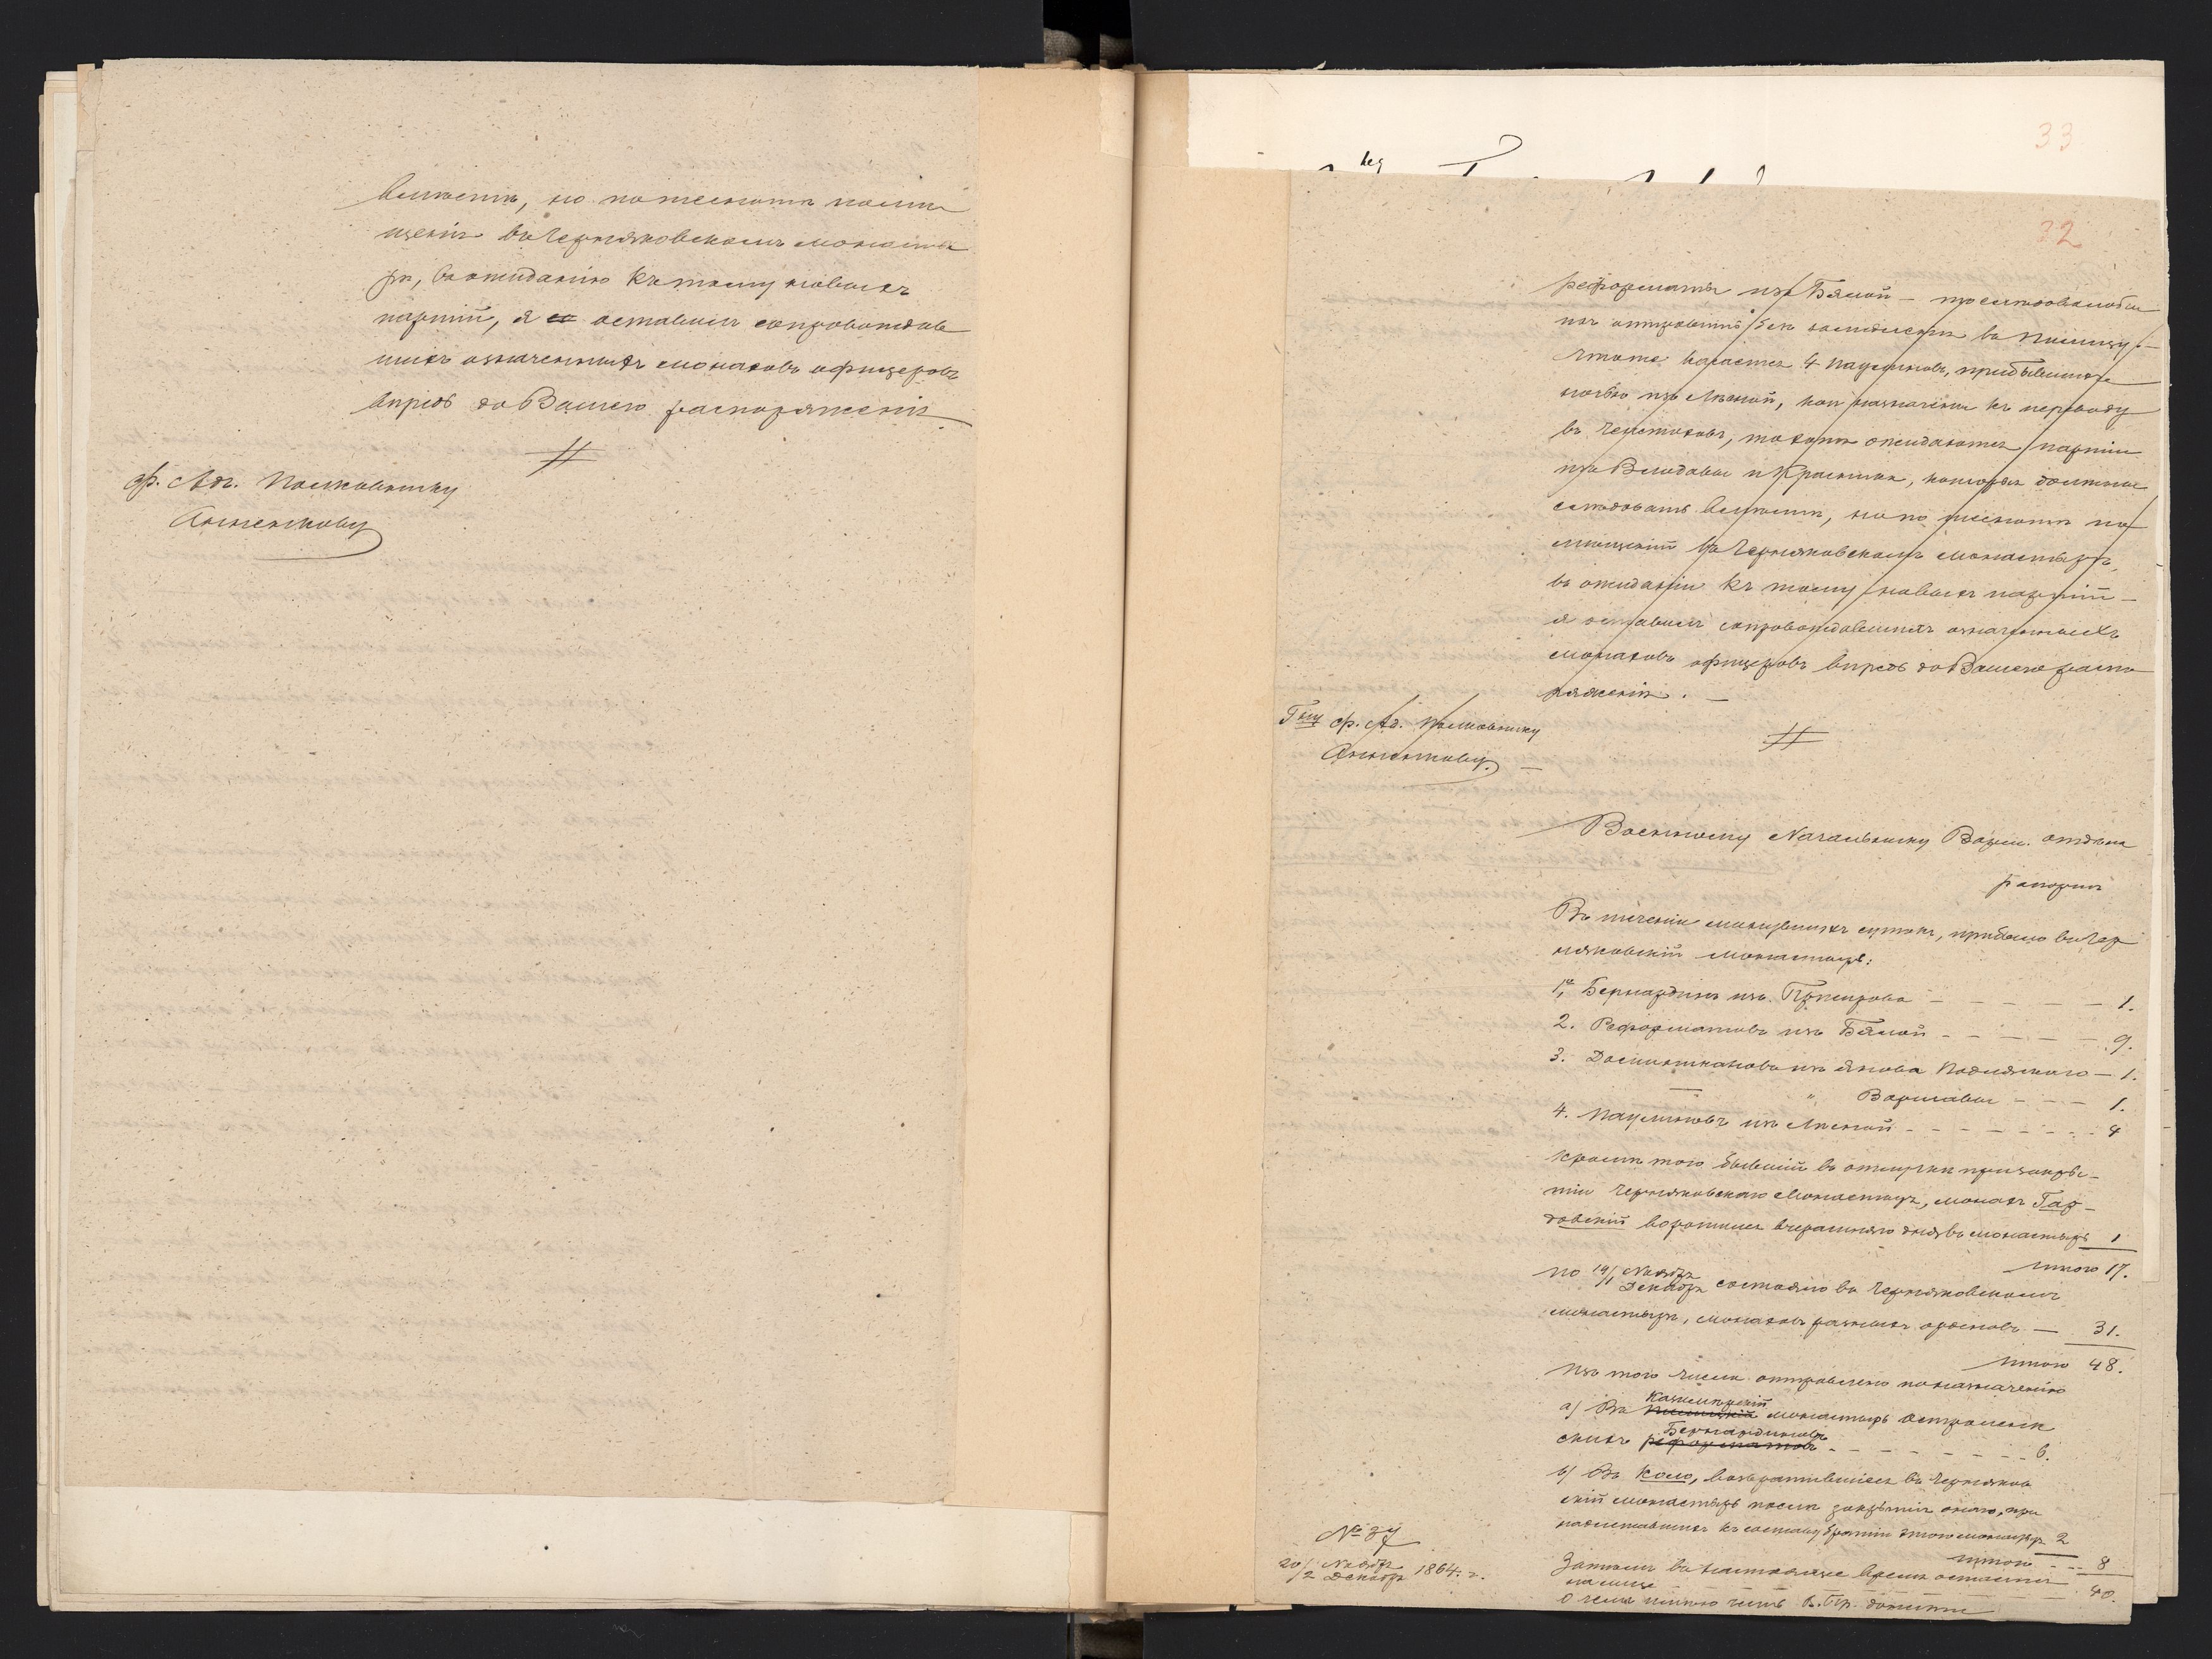 вместѣ, но по тѣснотѣ помѣ
щенія въ Черняковскомъ монасты
рѣ, въ ожиданію къ тому новыхъ
партій, я оставилъ сопровождав
шихъ означенныхъ монаховъ офицеровъ
впредь до Вашего распоряженія.
Ф. Ад. Полковнику
Анненкову
33
32
реформаты изъ Бялой —
въ Пилицу. —
4 Паулиновъ, прибывшихъ
ночью изъ Лѣсной, кои назначены къ переводу
въ Ченстоховъ, ожидаются партіи
изъ Влодавы и Красника, которыя должны
слѣдовать вмѣстѣ, но по тѣснотѣ по
мѣщеній въ Черняковскомъ монастырѣ,
въ ожиданіи къ тому новыхъ партій —
я оставилъ сопровождавшихъ означенныхъ
монаховъ офицеровъ впредь до Вашего распо
ряженія. —
Гну ф. Ад. Полковнику
Анненкову. —
Военному Начальнику Варш. отдѣла
рапортъ
Въ теченіи минувшихъ сутокъ, прибыло въ Чер
няковскій монастырь:
1, Бернардинъ изъ — — — — — 1.
2. Реформатовъ изъ Бялой — — — — — 9.
3. Доминикановъ изъ Янова Подляскаго — 1.
— " Варшавы — — — 1.
4. Паулиновъ изъ Лѣсной — — — — — — 4
Кромѣ того бывшій въ отлучкѣ при закры-
тіи Черняковскаго Монастыря, монахъ Гар-
довскій воротился вчерашняго дня въ монастырь 1
итого 17.
по 19/1 Ноября/Декабря состояло въ Черняковскомъ
монастырѣ, монаховъ разныхъ орденовъ — 31.
итого 48.
Изъ того числа отправлено по назначенію
а) Въ Казимірскій монастырь Остроленк
скихъ Бернардиновъ — — — — — — 6.
б) Въ Коло, возвратившіеся въ Черняков
скій монастырь послѣ закрытія онаго, при
надлежавшихъ къ составу братіи этого монастыря 2
итого — — 8
Затѣмъ въ настоящее время остается
на лицо — — — — 40.
О чемъ имѣю честь В. Пр. донести
№ 37
20/2 Ноября/Декабря 1864. г.